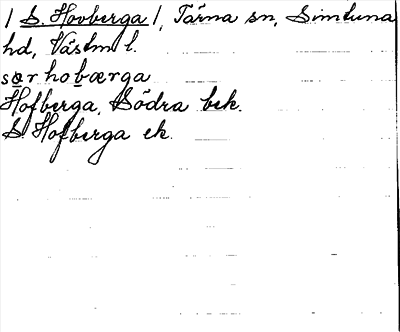 / S. Hovberga /, Tärna sn, Simtuna
hd, Västm l.
sørhobærga
Hofberga, Södra bek.
S. Hofberga ek.